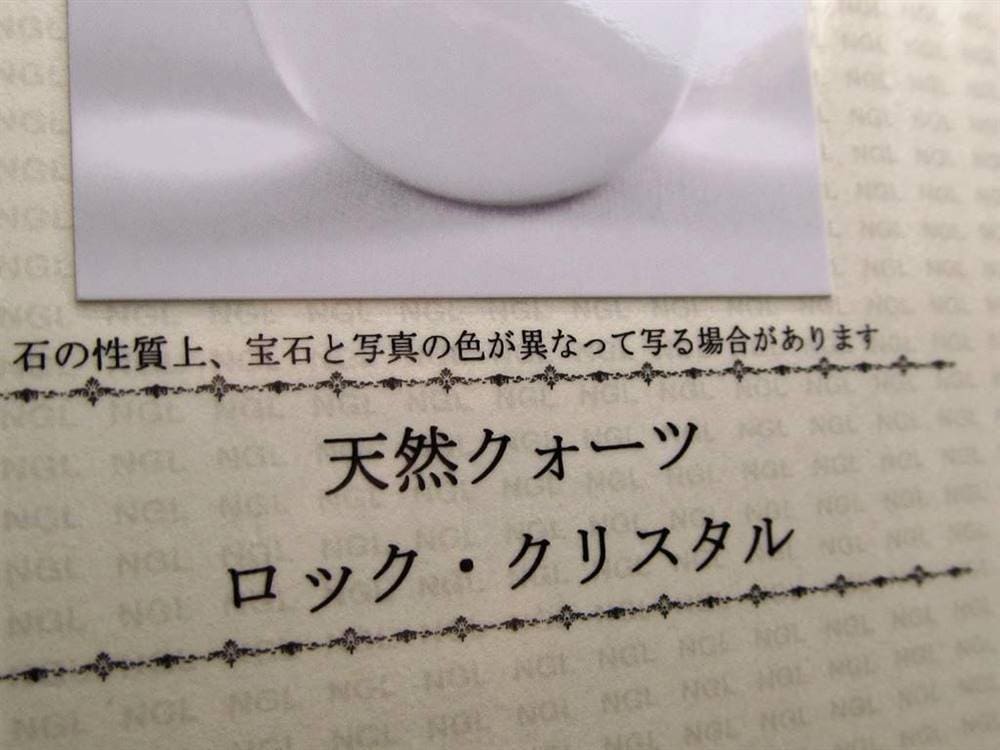 石の性質上、宝石と写真の色が異なって写る場合があります
天然クォーツ
ロック・クリスタル